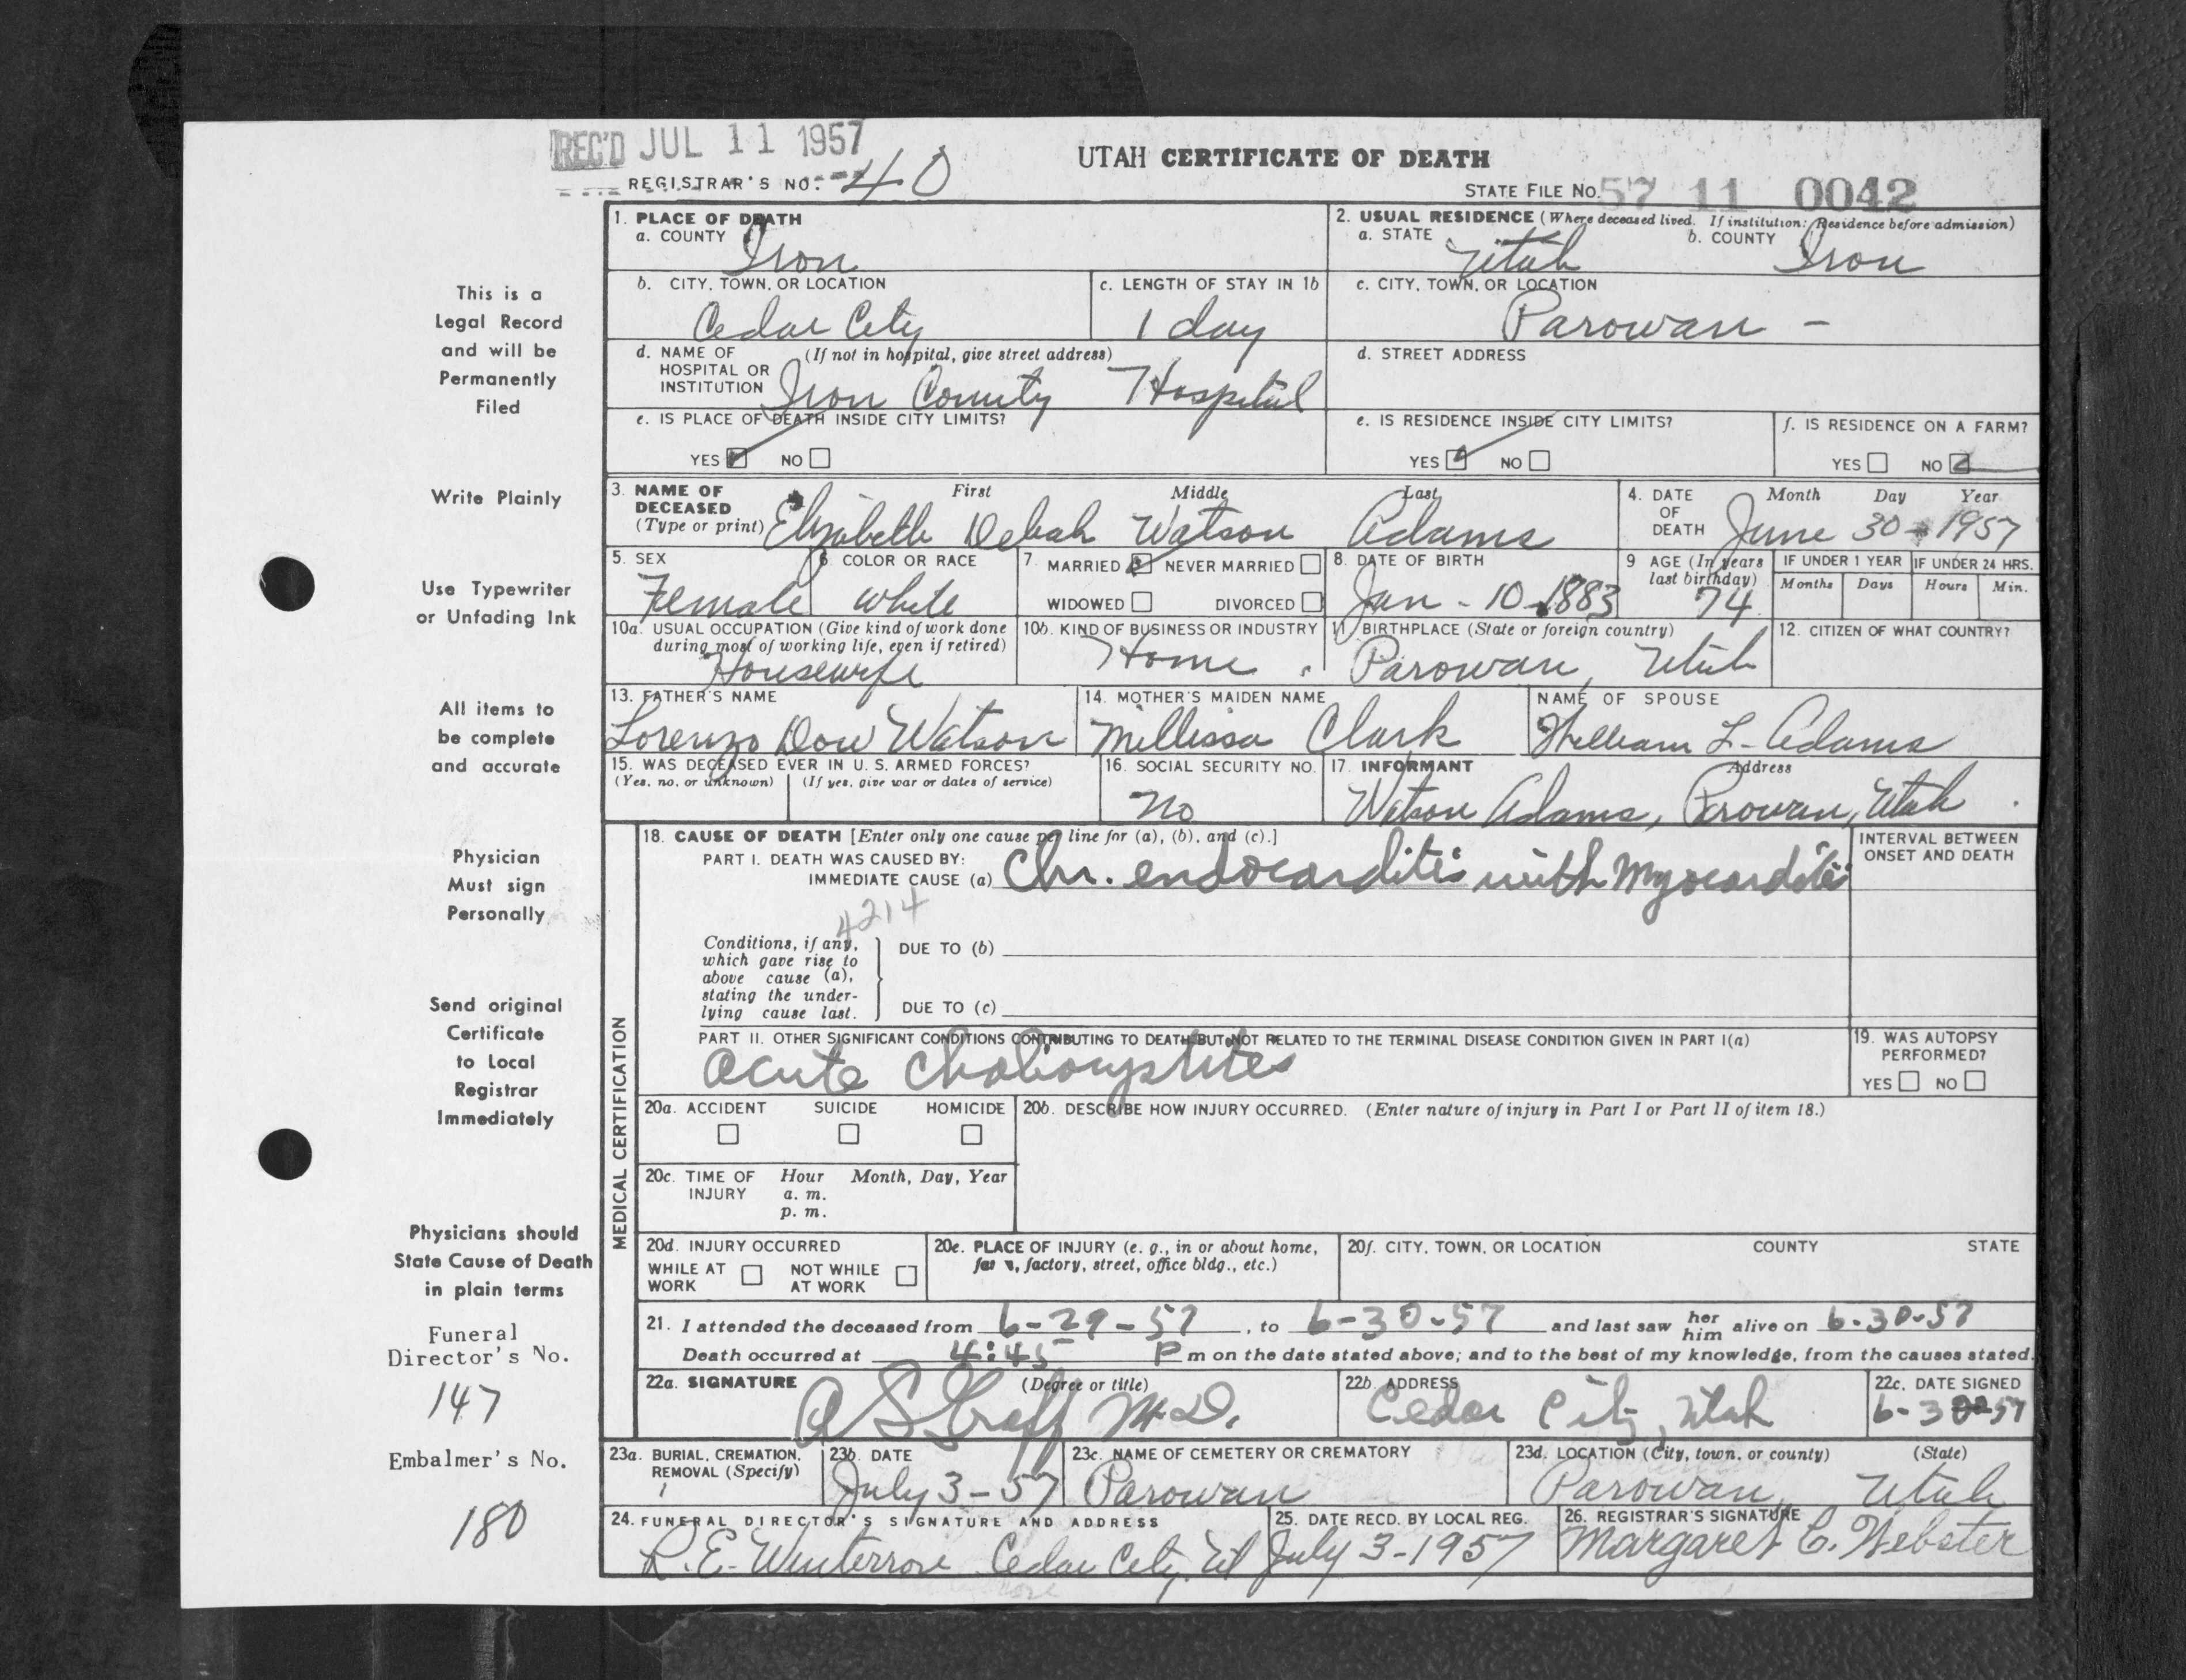 REC'D JUL 11 1957
UTAH CERTIFICATE OF DEATH
REGISTRAR'S NO. 40
STATE FILE NO. 57 11 0042
This is a
Legal Record
and will be
Permanently
Filed
Write Plainly
Use Typewriter
or Unfading Ink
All items to
be complete
and accurate
Physician
Must sign
Personally
Send original
Certificate
to Local
Registrar
Immediately
Physicians should
State Cause of Death
in plain terms
Funeral
Director's No.
147
Embalmer's No.
180
1. PLACE OF DEATH
a. COUNTY Iron
2. USUAL RESIDENCE (Where deceased lived. If institution: Residence before admission)
a. STATE Utah b. COUNTY Iron
b. CITY, TOWN, OR LOCATION
Cedar City
c. LENGTH OF STAY IN 1b
1 day
c. CITY, TOWN, OR LOCATION
Parowan -
d. NAME OF (If not in hospital, give street address)
HOSPITAL OR
INSTITUTION Iron County Hospital
d. STREET ADDRESS
e. IS PLACE OF DEATH INSIDE CITY LIMITS?
YES NO
e. IS RESIDENCE INSIDE CITY LIMITS?
YES NO
f. IS RESIDENCE ON A FARM?
YES NO
3. NAME OF DECEASED (Type or print) First Middle Last
Elizabeth Delsah Watson Adams
4. DATE OF DEATH Month Day Year
June 30 - 1957
5. SEX
Female
6. COLOR OR RACE
White
7. MARRIED NEVER MARRIED
WIDOWED DIVORCED
8. DATE OF BIRTH
Jan - 10 - 1883
9 AGE (In years
last birthday)
74
IF UNDER 1 YEAR IF UNDER 24 HRS.
Months Days Hours Min.
10a. USUAL OCCUPATION (Give kind of work done
during most of working life, even if retired)
Housewife
10b. KIND OF BUSINESS OR INDUSTRY
Home
11. BIRTHPLACE (State or foreign country)
Parowan, Utah
12. CITIZEN OF WHAT COUNTRY?
13. FATHER'S NAME
Lorenzo Dow Watson
14. MOTHER'S MAIDEN NAME
Millissa Clark
NAME OF SPOUSE
William L. Adams
15. WAS DECEASED EVER IN U. S. ARMED FORCES?
(Yes, no, or unknown) (If yes, give war or dates of service)
16. SOCIAL SECURITY NO.
no
17. INFORMANT Address
Watson Adams, Parowan, Utah
MEDICAL CERTIFICATION
18. CAUSE OF DEATH [Enter only one cause per line for (a), (b), and (c).]
PART I. DEATH WAS CAUSED BY:
IMMEDIATE CAUSE (a) Chr. endocarditis with Myocarditis
INTERVAL BETWEEN
ONSET AND DEATH
4214
Conditions, if any,
which gave rise to
above cause (a),
stating the under-
lying cause last.
DUE TO (b)
DUE TO (c)
PART II. OTHER SIGNIFICANT CONDITIONS CONTRIBUTING TO DEATH BUT NOT RELATED TO THE TERMINAL DISEASE CONDITION GIVEN IN PART I(a)
acute
19. WAS AUTOPSY
PERFORMED?
YES NO
20a. ACCIDENT SUICIDE HOMICIDE
20b. DESCRIBE HOW INJURY OCCURRED. (Enter nature of injury in Part I or Part II of item 18.)
20c. TIME OF INJURY Hour Month, Day, Year
a. m.
p. m.
20d. INJURY OCCURRED
WHILE AT WORK NOT WHILE AT WORK
20e. PLACE OF INJURY (e. g., in or about home,
farm, factory, street, office bldg., etc.)
20f. CITY, TOWN, OR LOCATION COUNTY STATE
21. I attended the deceased from 6-29-57, to 6-30-57 and last saw her him alive on 6-30-57
Death occurred at 4:45 P m on the date stated above; and to the best of my knowledge, from the causes stated.
22a. SIGNATURE (Degree or title)
A S Graff M.D.
22b. ADDRESS
Cedar City, Utah
22c. DATE SIGNED
6-30-57
23a. BURIAL, CREMATION,
REMOVAL (Specify)
23b. DATE
July 3-57
23c. NAME OF CEMETERY OR CREMATORY
Parowan
23d. LOCATION (City, town, or county) (State)
Parowan, Utah
24. FUNERAL DIRECTOR'S SIGNATURE AND ADDRESS
R. E. Winterrose Cedar City, Ut
25. DATE RECD. BY LOCAL REG.
July 3-1957
26. REGISTRAR'S SIGNATURE
Margaret C. Webster